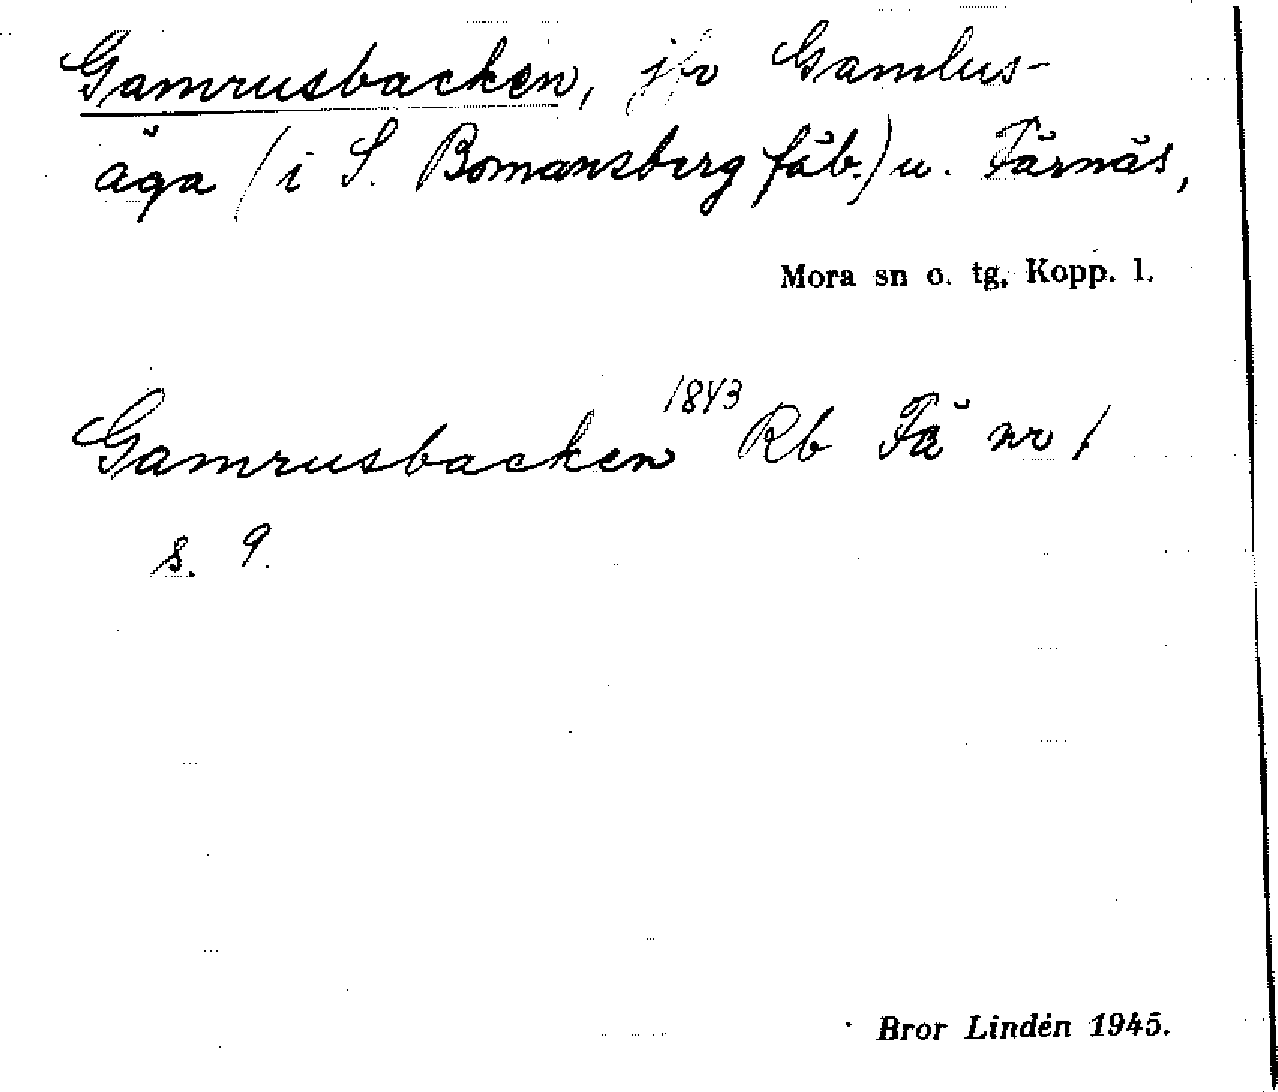 Gamrusbacken, jfr Gamlus-
äga (i S. Bomansberg fäb.) u. Färnäs,
Mora sn o. tg, Kopp. l.
Gamrusbacken 1843 Rb Fä nr 1
s. 9.
Bror Lindén 1945.